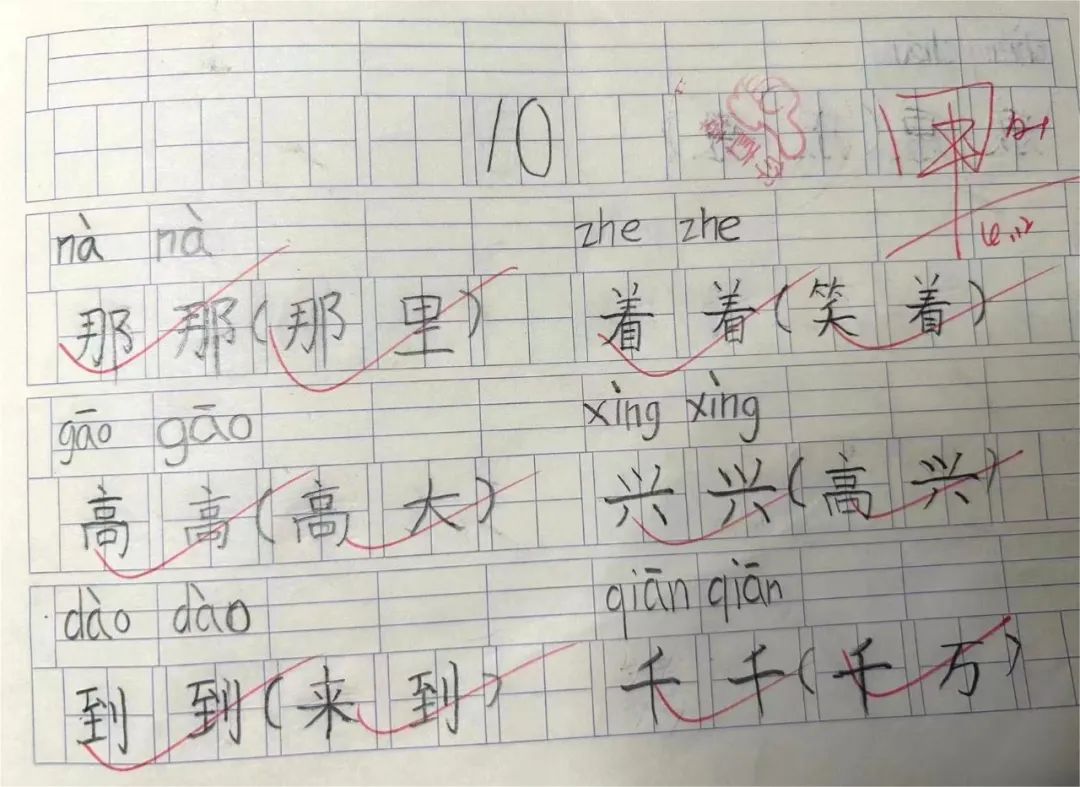 10
nà nà zhe zhe
那 那(那 里) 着 着(笑 着)
gāo gāo xìng xìng
高 高(高 大) 兴 兴(高 兴)
dào dào qiān qiān
到 到(来 到) 千 千(千 万)